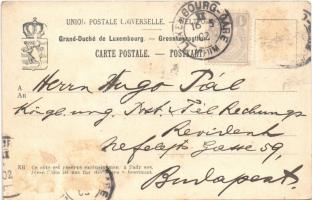 UNION POSTALE UNIVERSELLE. WELTPO
LUXEMBOURG-GARE
Grand-Duché de Luxembourg. — Grossherzogthum
CARTE POSTALE. — POSTKARTE
A
AN
Herrn Hugo Pál
Königl. ung. Post. & Tel Rechnungs
Revident
Nefelejts Gasse 59,
Budapest.
NB
Ce côté est réservé exclusivement à l'adresse.
Diese Seite ist nur für die Adresse bestimmt.